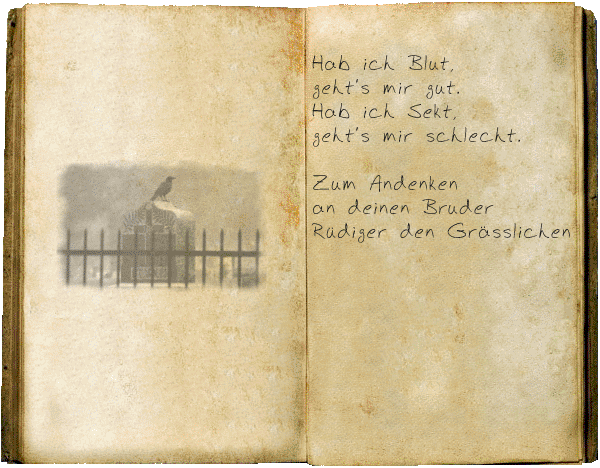 Hab ich Blut,
geht's mir gut.
Hab ich Sekt,
geht's mir schlecht.
Zum Andenken
an deinen Bruder
Rüdiger den Grässlichen